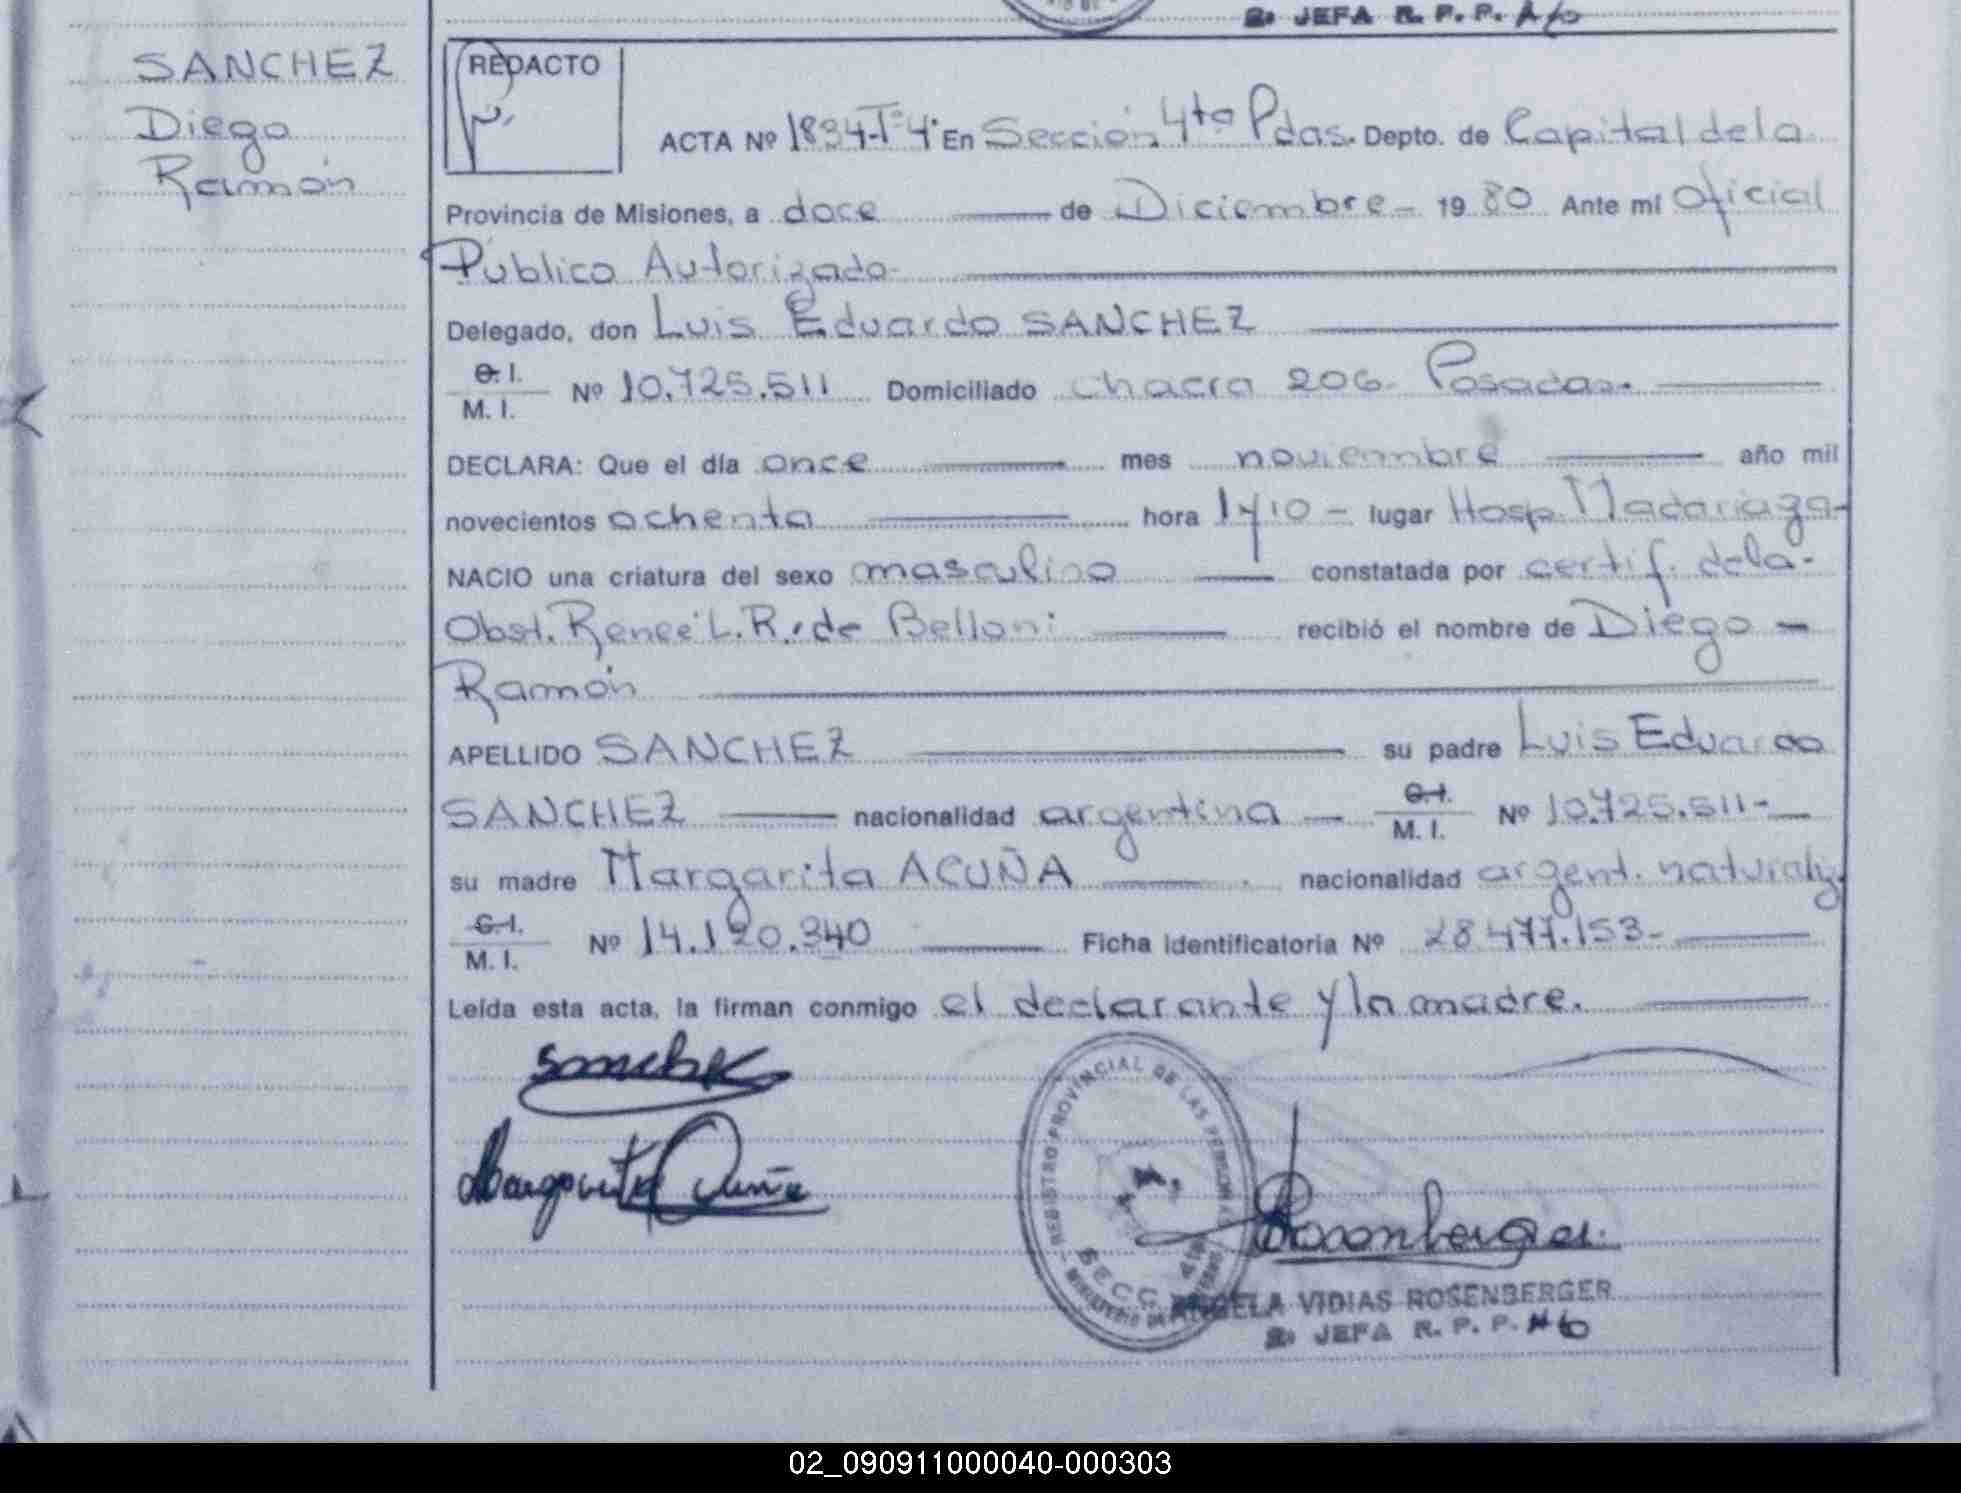 2º JEFA R. P. P. A/c
SANCHEZ
Diego
Ramón
REDACTO
ACTA Nº 1834-Tº4º En Sección 4ta Pdas. Depto. de Capital de la
Provincia de Misiones, a doce de Diciembre - 19 80 Ante mi Oficial
Público Autorizado
Delegado, don Luis Eduardo SANCHEZ
C. I.
M. I. Nº 10.725.511 Domiciliado chacra 206- Posadas.
DECLARA: Que el día once mes noviembre año mil
novecientos ochenta hora 1y10 - lugar Hosp. Madariaga-
NACIO una criatura del sexo masculino constatada por certif. dela-
Obst. Reneé L. R. de Belloni recibió el nombre de Diego -
Ramón
APELLIDO SANCHEZ su padre Luis Eduardo
SANCHEZ nacionalidad argentina - C. I.
M. I. Nº 10.725.511-
su madre Margarita ACUÑA nacionalidad argent. naturaliz
C. I.
M. I. Nº 14.120.340 Ficha identificatoria Nº 28477.153-
Leída esta acta, la firman conmigo el declarante y la madre.
Sanchez
Margarita Acuña
REGISTRO PROVINCIAL DE LAS PERSONAS
SECC.
MINISTERIO DE
Rosenberger
ANGELA VIDIAS ROSENBERGER
2º JEFA R. P. P. A/c
02_090911000040-000303